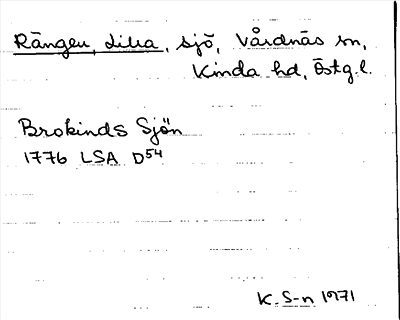 Rängen, Lilla, sjö, Vårdnäs sn,
Kinda hd, Östg.l.
Brokinds Sjön
1776 LSA D54
K. S-n 1971